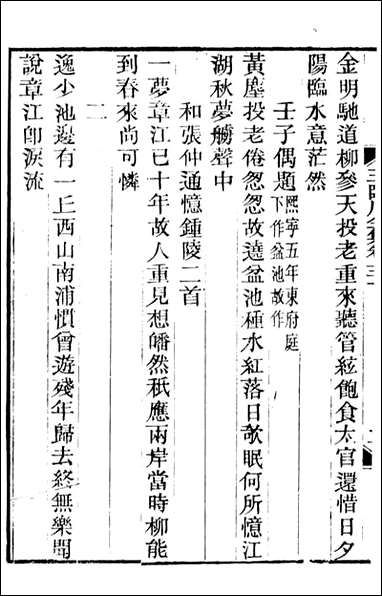 金明馳道柳參天投老重來聽管絃飽食太官還惜日夕
陽臨水意茫然
壬子偶題熙寧五年東府庭下作盆池故作
黃塵投老倦怱怱故遶盆池種水紅落日欹眠何所憶江
湖秋夢艣聲中
和張仲通憶鍾陵二首
一夢章江已十年故人重見想皤然秖應兩岸當時柳能
到春來尚可憐
二
逸少池邊有一丘西山南浦慣曾遊殘年歸去終無樂聞
說章江卽淚流